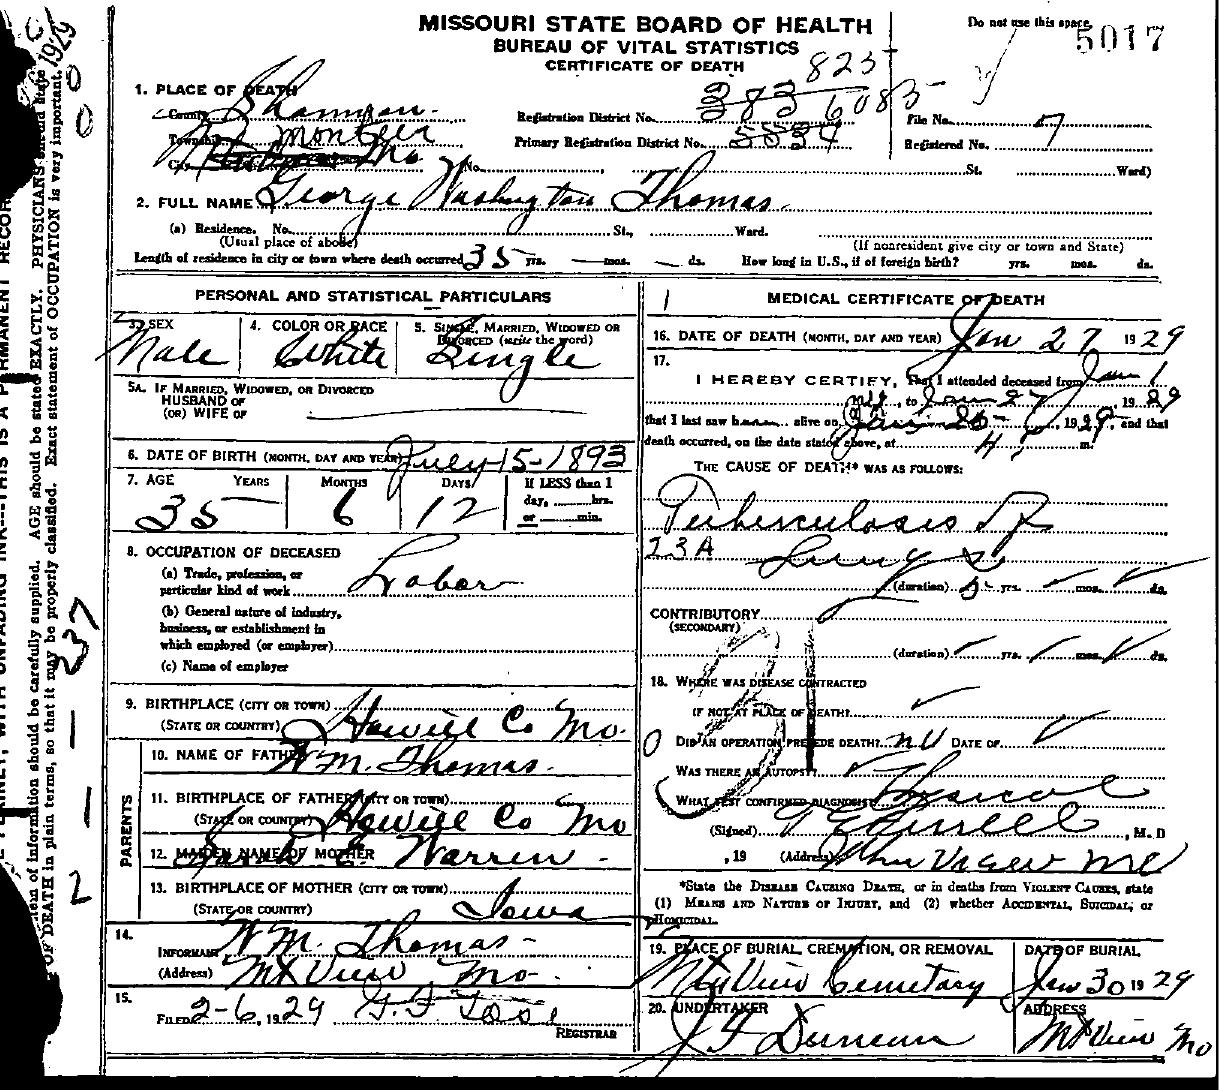 MISSOURI STATE BOARD OF HEALTH
BUREAU OF VITAL STATISTICS
CERTIFICATE OF DEATH
Do not use this space.
5017
1. PLACE OF DEATH
County Shannon
Township Montier
City Mo No. St. Ward)
823
Registration District No. 383 6085
Primary Registration District No. 5534
File No.
Registered No. 7
2. FULL NAME George Washington Thomas
(a) Residence. No. St., Ward.
(Usual place of abode) (If nonresident give city or town and State)
Length of residence in city or town where death occurred 35 yrs. — mos. — ds. How long in U.S., if of foreign birth? yrs. mos. ds.
PERSONAL AND STATISTICAL PARTICULARS
3. SEX Male
4. COLOR OR RACE White
5. SINGLE, MARRIED, WIDOWED OR DIVORCED (write the word) Single
5A. IF MARRIED, WIDOWED, OR DIVORCED
HUSBAND OF
(OR) WIFE OF
6. DATE OF BIRTH (MONTH, DAY AND YEAR) July 15-1893
7. AGE YEARS MONTHS DAYS If LESS than 1
day, hrs.
or min.
35 6 12
8. OCCUPATION OF DECEASED
(a) Trade, profession, or
particular kind of work Labor
(b) General nature of industry,
business, or establishment in
which employed (or employer)
(c) Name of employer
9. BIRTHPLACE (CITY OR TOWN)
(STATE OR COUNTRY) Howell Co Mo.
PARENTS
10. NAME OF FATHER W.M. Thomas.
11. BIRTHPLACE OF FATHER (CITY OR TOWN)
(STATE OR COUNTRY) Howell Co Mo
12. MAIDEN NAME OF MOTHER Sarah E. Warren -
13. BIRTHPLACE OF MOTHER (CITY OR TOWN)
(STATE OR COUNTRY) Iowa
14.
INFORMANT W.M. Thomas -
(Address) Mt View Mo -
15.
FILED 2-6, 1929
REGISTRAR
MEDICAL CERTIFICATE OF DEATH
16. DATE OF DEATH (MONTH, DAY AND YEAR) Jan 27 1929
17.
I HEREBY CERTIFY, That I attended deceased from Jan 1
, to Jan 27, 1929
that I last saw h alive on Jan 25, 1929, and that
death occurred, on the date stated above, at 4 P. m.
THE CAUSE OF DEATH* WAS AS FOLLOWS:
Tuberculosis of
23A Lungs
(duration) yrs. mos. ds.
CONTRIBUTORY
(SECONDARY)
(duration) yrs. mos. ds.
31
18. WHERE WAS DISEASE CONTRACTED
IF NOT AT PLACE OF DEATH?
DID AN OPERATION PRECEDE DEATH? no DATE OF
WAS THERE AN AUTOPSY?
WHAT TEST CONFIRMED DIAGNOSIS?
(Signed) , M. D
, 19 (Address) Mtn View Mo
*State the DISEASE CAUSING DEATH, or in deaths from VIOLENT CAUSES, state
(1) MEANS AND NATURE OF INJURY, and (2) whether ACCIDENTAL, SUICIDAL, or
HOMICIDAL.
19. PLACE OF BURIAL, CREMATION, OR REMOVAL
Mtn View Cemetary
DATE OF BURIAL
Jan 30 1929
20. UNDERTAKER
J F Duncan
ADDRESS
Mt View Mo
1929
2 — 1 — 237
PHYSICIANS should state
AGE should be stated EXACTLY.
information should be carefully supplied.
OF DEATH in plain terms, so that it may be properly classified. Exact statement of OCCUPATION is very important.
WITH UNFADING INK---THIS IS A PERMANENT RECOR